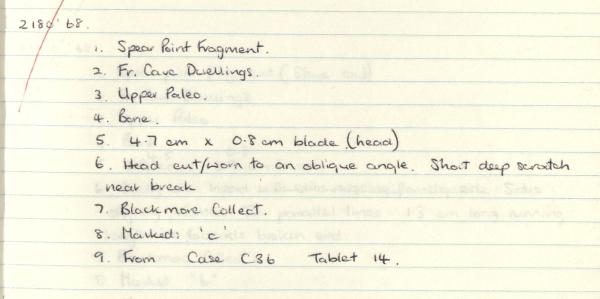 2180'68.
1. Spear Point Fragment.
2. Fr. Cave Dwellings.
3. Upper Paleo.
4. Bone.
5. 4.7 cm x 0.8 cm blade (head)
6. Head cut/worn to an oblique angle. Short deep scratch
near break
7. Blackmore Collect.
8. Marked: 'c'
9. From Case C36 Tablet 14.